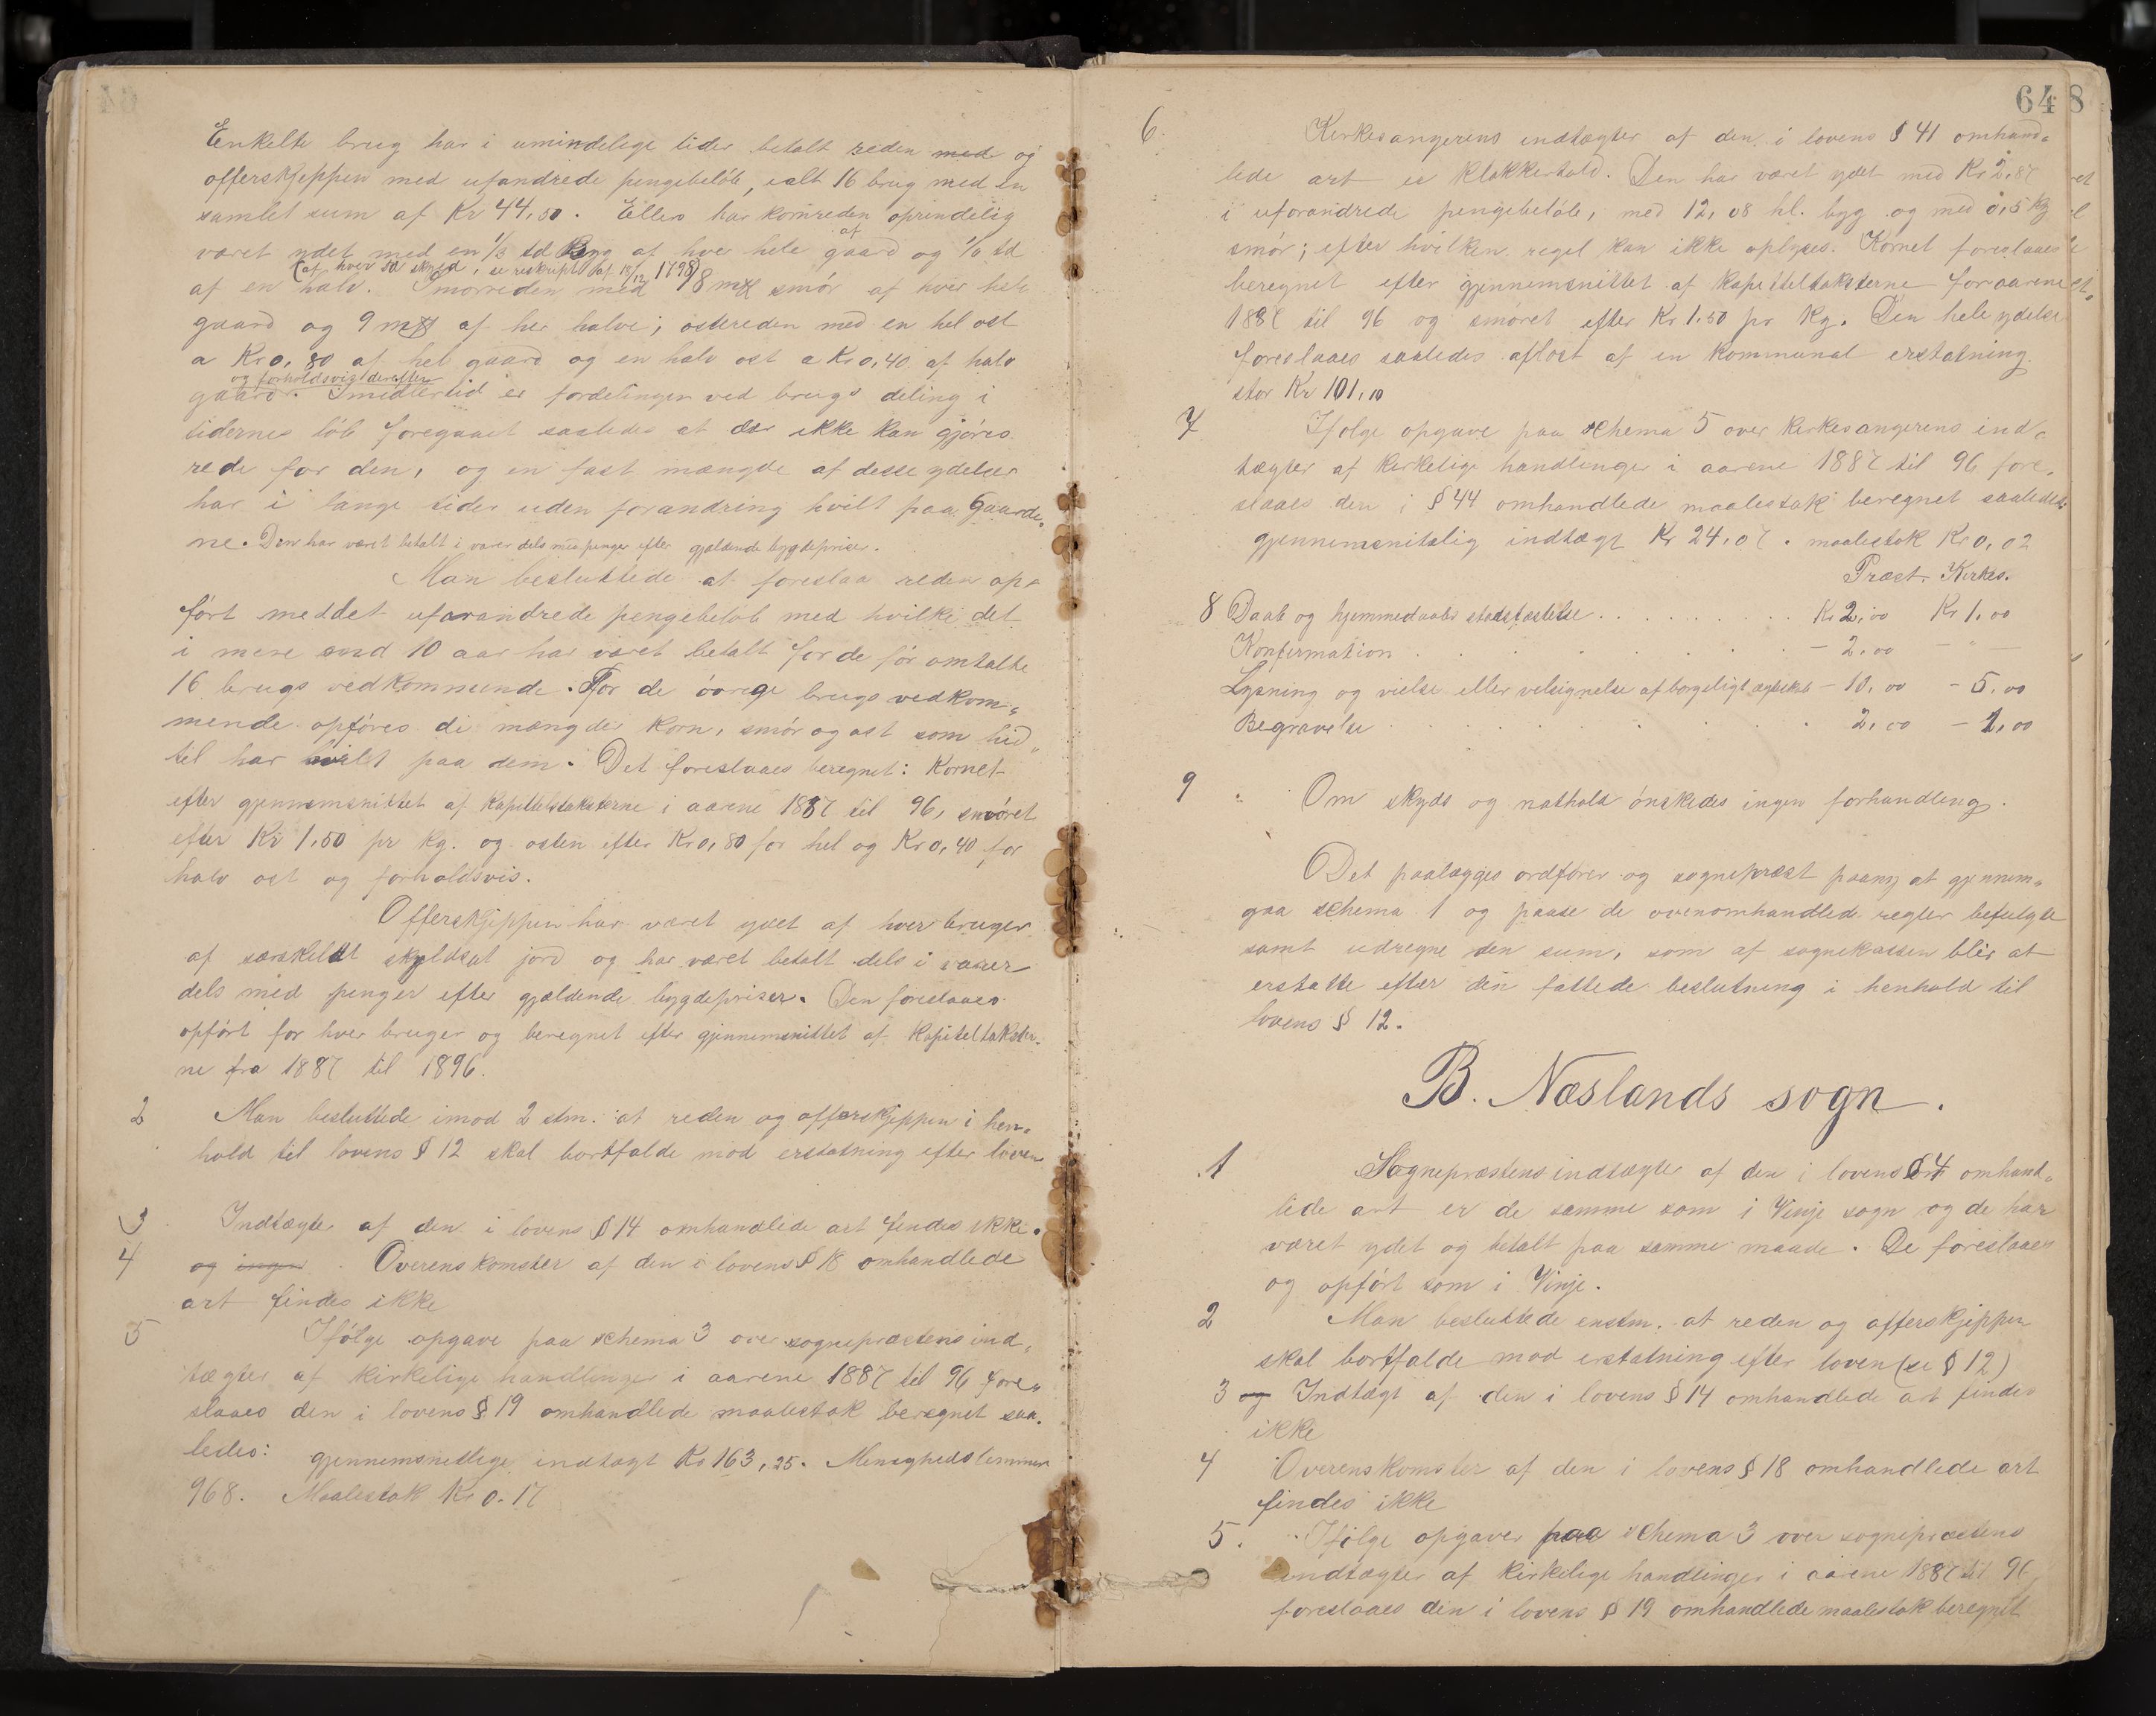 Enkelte brug har i umindelige tider betalt reden med og
offerskjeppen med uforandrede pengebeløb, ialt 16 brug med en
samlet sum af Kr 44,50. Ellers har kornreden oprindelig
været ydet med en 1/3 td Byg af hver hele gaard og 1/6 td
af
(af hver sd skyld, se reskript af 18/12 1798)
af en halv. Smørreden med 18 mrk smør af hver hele
gaard og 9 mrk af her halve; ostereden med en hel ost
a Kr 0,80 af hel gaard og en halv ost a Kr 0,40 af halv
og forholdsvigt derefter
gaard. Imidlertid er fordelingen ved brugs deling i
tidernes løb foregaaet saaledes at der ikke kan gjøres
rede for den, og en fast mængde af desse ydelser
har i lange tider uden forandring hvilt paa Gaarde-
ne. Den har været betalt i varer dels med penger efter gjældende bygdepriser.
Man besluttede at foreslaa reden op-
ført meddet uforandrede pengebeløb med hvilke det
i mere end 10 aar har været betalt for de før omtalte
16 brugs vedkommende. For de øvrige brugs vedkom-
mende opføres de mængder korn, smør og ost som hid-
til har hvilet paa dem. Det foreslaaes beregnet: Kornet
efter gjennemsnittet af Kapitelstaksterne i aarene 1887 til 96, smøret
efter Kr 1.50 pr Kg. og osten efter Kr 0,80 for hel og Kr 0,40 for
halv ost og forholdsvis.
Offerskjeppen har været ydet af hver bruger
af særskildt skyldsat jord og har været betalt dels i varer
dels med penger efter gjældende bygdepriser. Den foreslaaes
opført for hver bruger og beregnet efter gjennemsnittet af Kapiteltakster-
ne fra 1887 til 1896.
2 Man besluttede imod 2 stm. at reden og offerskjeppen i hen-
hold til lovens § 12 skal bortfalde mod erstatning efter loven
3 Indtægter af den i lovens § 14 omhandlede art findes ikke.
4 og ingen Overenskomster af den i lovens § 18 omhandlede
art findes ikke
5 Ifølge opgave paa schema 3 over sogneprestens ind-
tægter af kirkelige handlinger i aarene 1887 til 96 fore-
slaaes den i lovens § 19 omhandlede maalestok beregnet saa-
ledes: gjennemsnitlige indtægt Kr 163,25. Menighedslemmer
968. Maalestok Kr 0.17
648
6. Kirkesangerens indtægter af den i lovens § 41 omhand-
lede art er klokkertold. Den har været ydet med Kr 2,87
i uforandrede pengebeløb, med 12,08 hl. byg og med 0,5 kg
smør; efter hvilken regel kan ikke oplyses. Kornet foreslaaes
beregnet efter gjennemsnittet af Kapiteltaksterne for aarene
1887 til 96 og smøret efter Kr 1.50 pr Kg. Den hele ydelse
foreslaaes saaledes afløst af en kommunal erstatning
stor Kr 101,10
7 Ifølge opgave paa schema 5 over kirkesangerens ind-
tægter af kirkelige handlinger i aarene 1887 til 96 fore-
slaaes den i § 44 omhandlede maalestok beregnet saaledes:
gjennemsnitslig indtægt Kr 24,07. maalestok Kr 0,02
Præst. Kirkes.
8 Daab og hjemmedaabs stadfæstelse . . . . . . . . . . Kr 2,00 Kr 1,00
Konfirmation . . . . . . . - 2.00 - " -
Lysning og vielse eller velsignelse af borgeligt ægteskab - 10,00 - 5,00
Begravelse . . . . . . . 2,00 - 1,00
9 Om skyds og nathold ønskedes ingen forhandling.
Det paalægges ordfører og sogneprest paany at gjennem-
gaa schema 1 og paase de ovenomhandlede regler befulgte
samt udregne den sum, som af sognekassen blir at
erstatte efter den fattede beslutning i henhold til
lovens § 12.
B. Næslands sogn.
1 Sogneprestens indtægter af den i lovens § 4 omhand-
lede art er de samme som i Vinje sogn og de har
været ydet og betalt paa samme maade. De foreslaaes
og opført som i Vinje.
2 Man besluttede enstm. at reden og offerskjeppen
skal bortfalde mod erstatning efter loven (se § 12)
3 og Indtægt af den i lovens § 14 omhandlede art findes
ikke
4 Overenskomster af den i lovens § 18 omhandlede art
findes ikke
5. Ifølge opgaver paa schema 3 over sogneprestens
indtægter af kirkelige handlinger i aarene 1887 til 96
foreslaaes den i lovens § 19 omhandlede maalestok beregnet